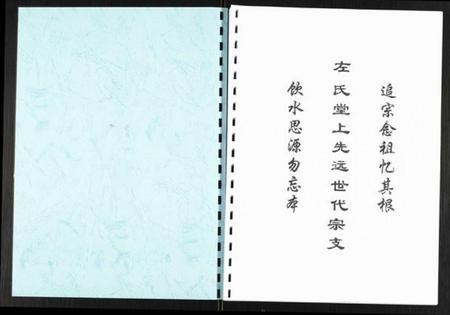 追宗念祖忆其根
左氏堂上先远世代宗支
饮水思源勿忘本